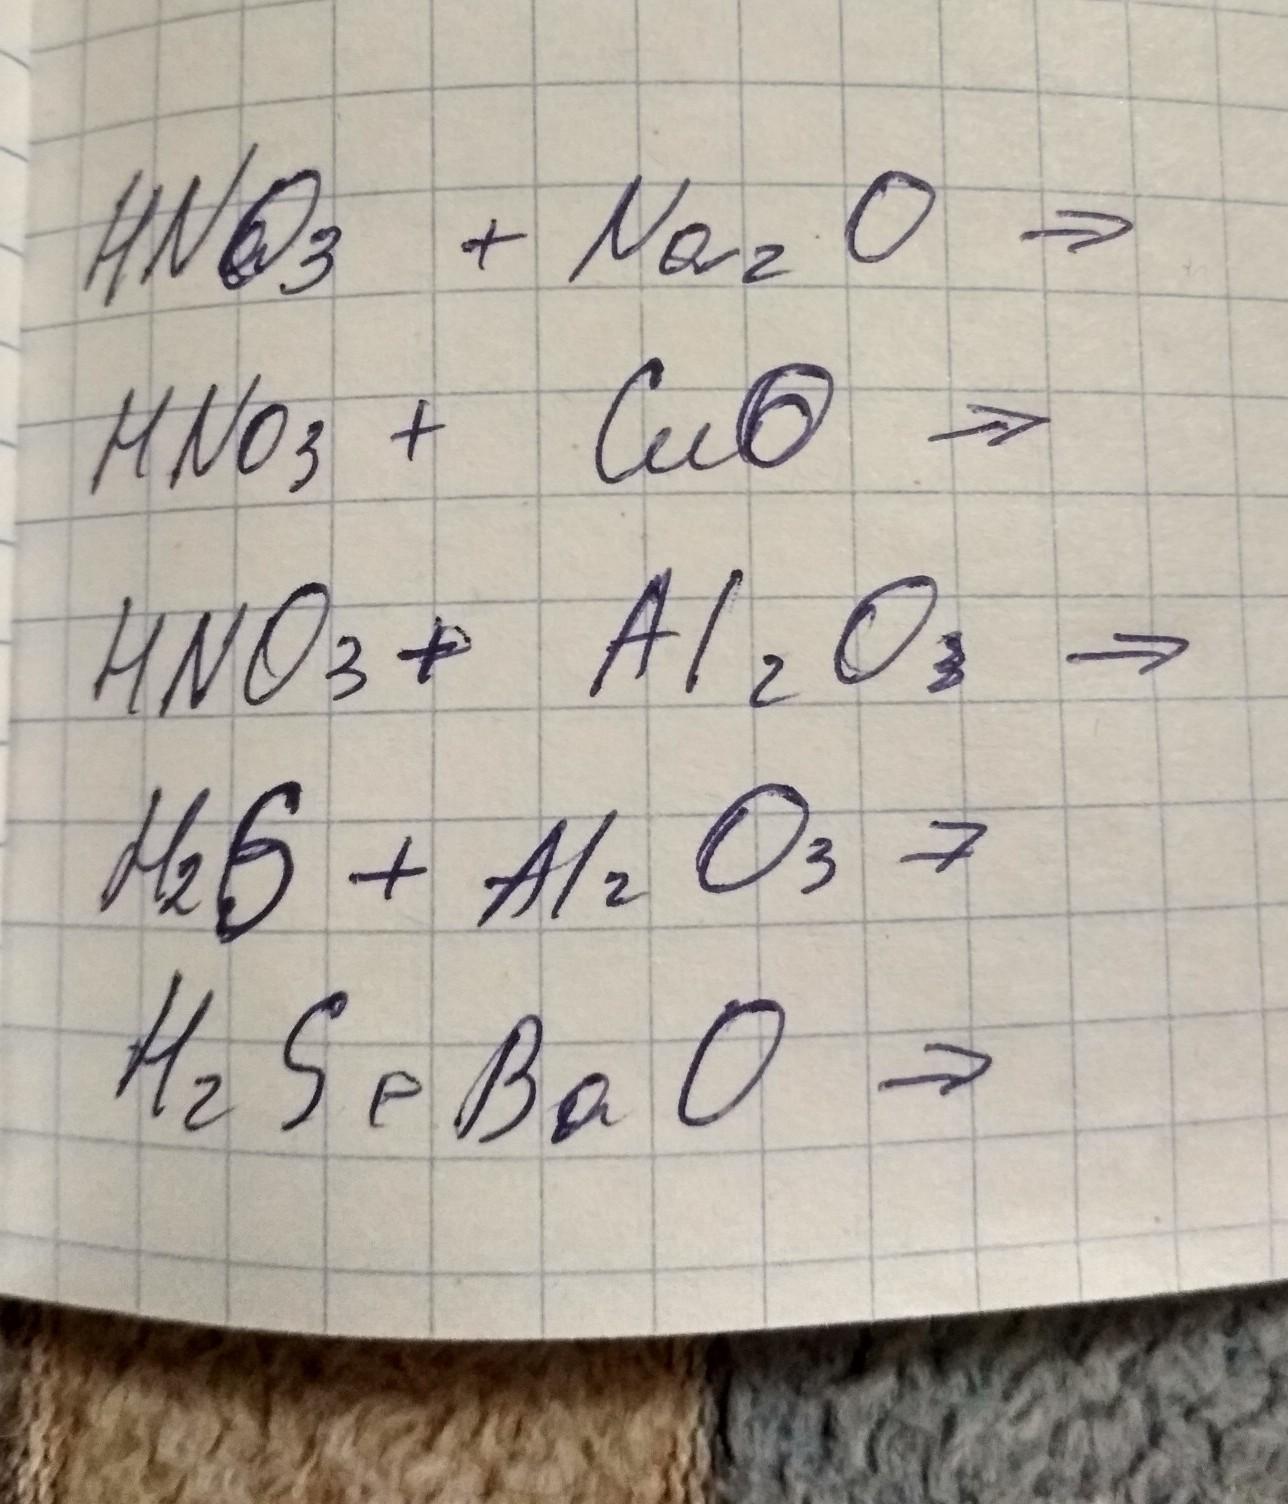 HNO₃ + Na₂O ⇒
HNO₃ + CuO ⇒
HNO₃ + Al₂O₃ ⇒
H₂S + Al₂O₃ ⇒
H₂Se BaO ⇒